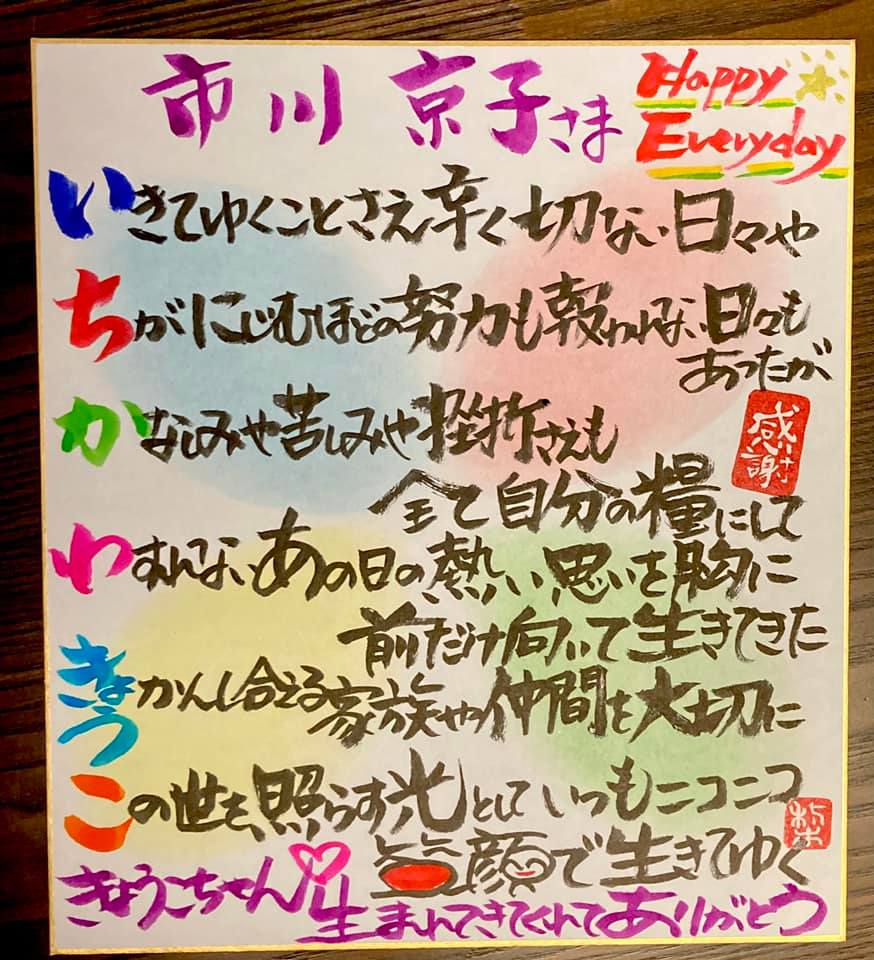 市川 京子さま
Happy
Everyday
いきてゆくことさえ辛く切ない日々や
ちがにじむほどの努力も報われない日々も
あったが
かなしみや苦しみや挫折さえも
全て自分の糧にして
わすれないあの日の熱い思いを胸に
前だけ向いて生きてきた
きょうかんし合える家族や仲間を大切に
この世を照らす光としていつもニコニコ
笑顔で生きてゆく
きょうこちゃん
生まれてきてくれてありがとう
感謝